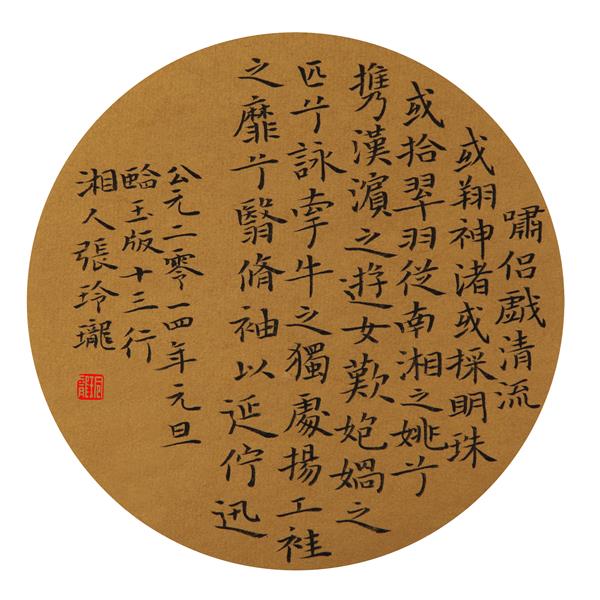 嘯侶戲清流
或翔神渚或採明珠
或拾翠羽從南湘之姚兮
携漢濱之遊女歎㚿媧之
匹兮詠牽牛之獨處揚工袿
之靡兮翳脩袖以延佇迅
公元二零一四年元旦
臨玉版十三行
湘人張玲瓏